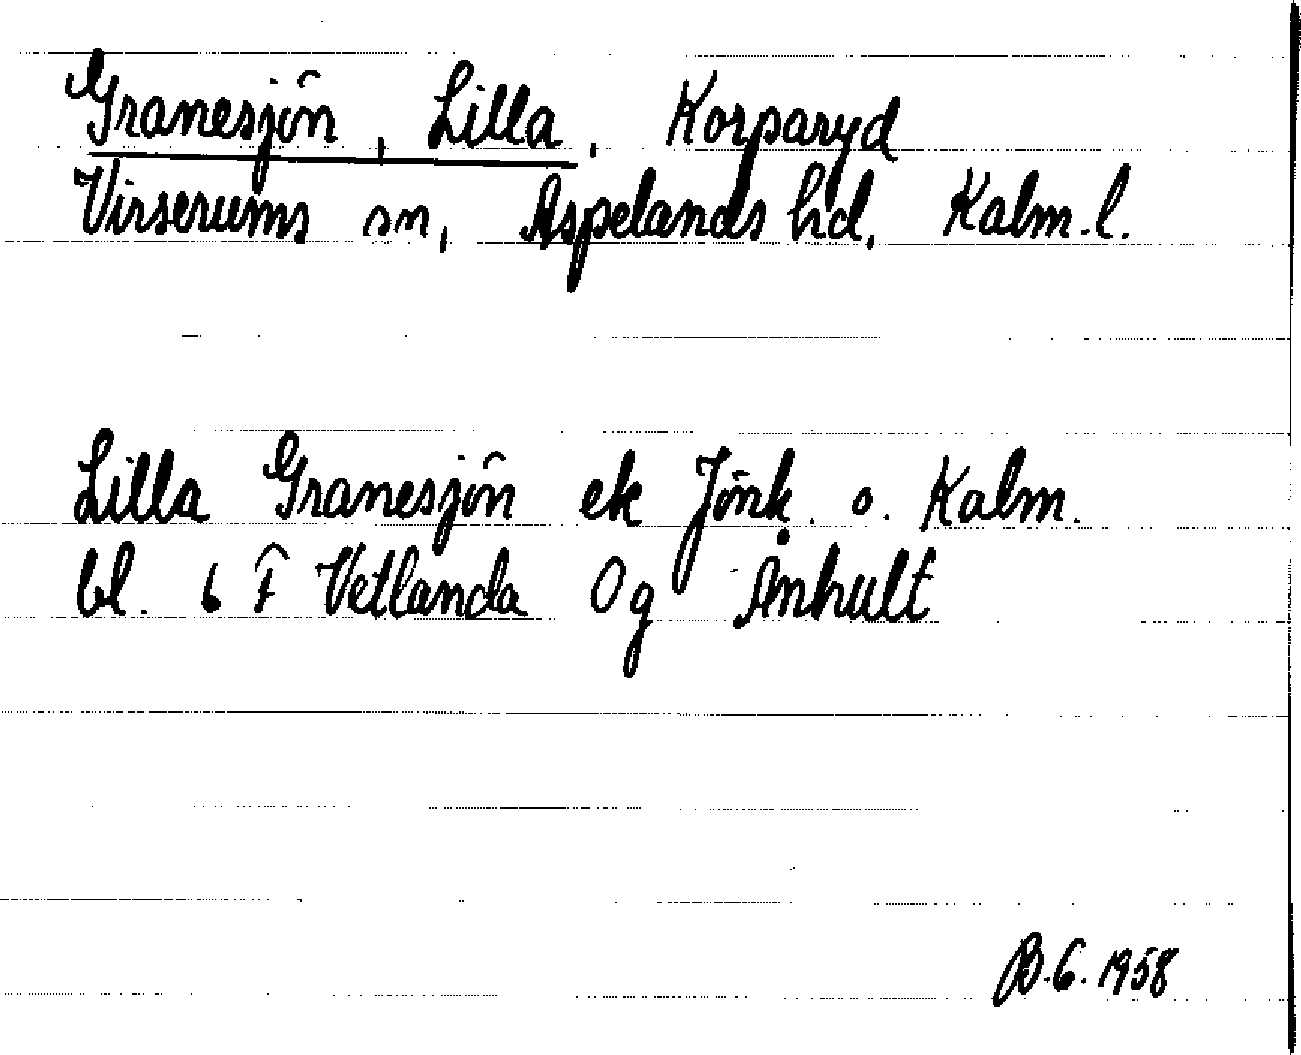 Granesjön, Lilla, Korparyd
Virserums sn, Aspelands hd, Kalm.l.
Lilla Granesjön ek Jönk. o. Kalm.
bl. 6 F Vetlanda Og Änhult
B.G. 1958